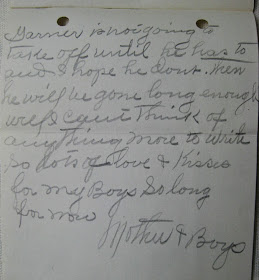 Garner is not going to
take off until he has to
and I hope he dont. then
he will be gone long enough
well I cant think of
anything more to write
so lots of love & Kisses
for my Boys So long
for now
Mother & Boys